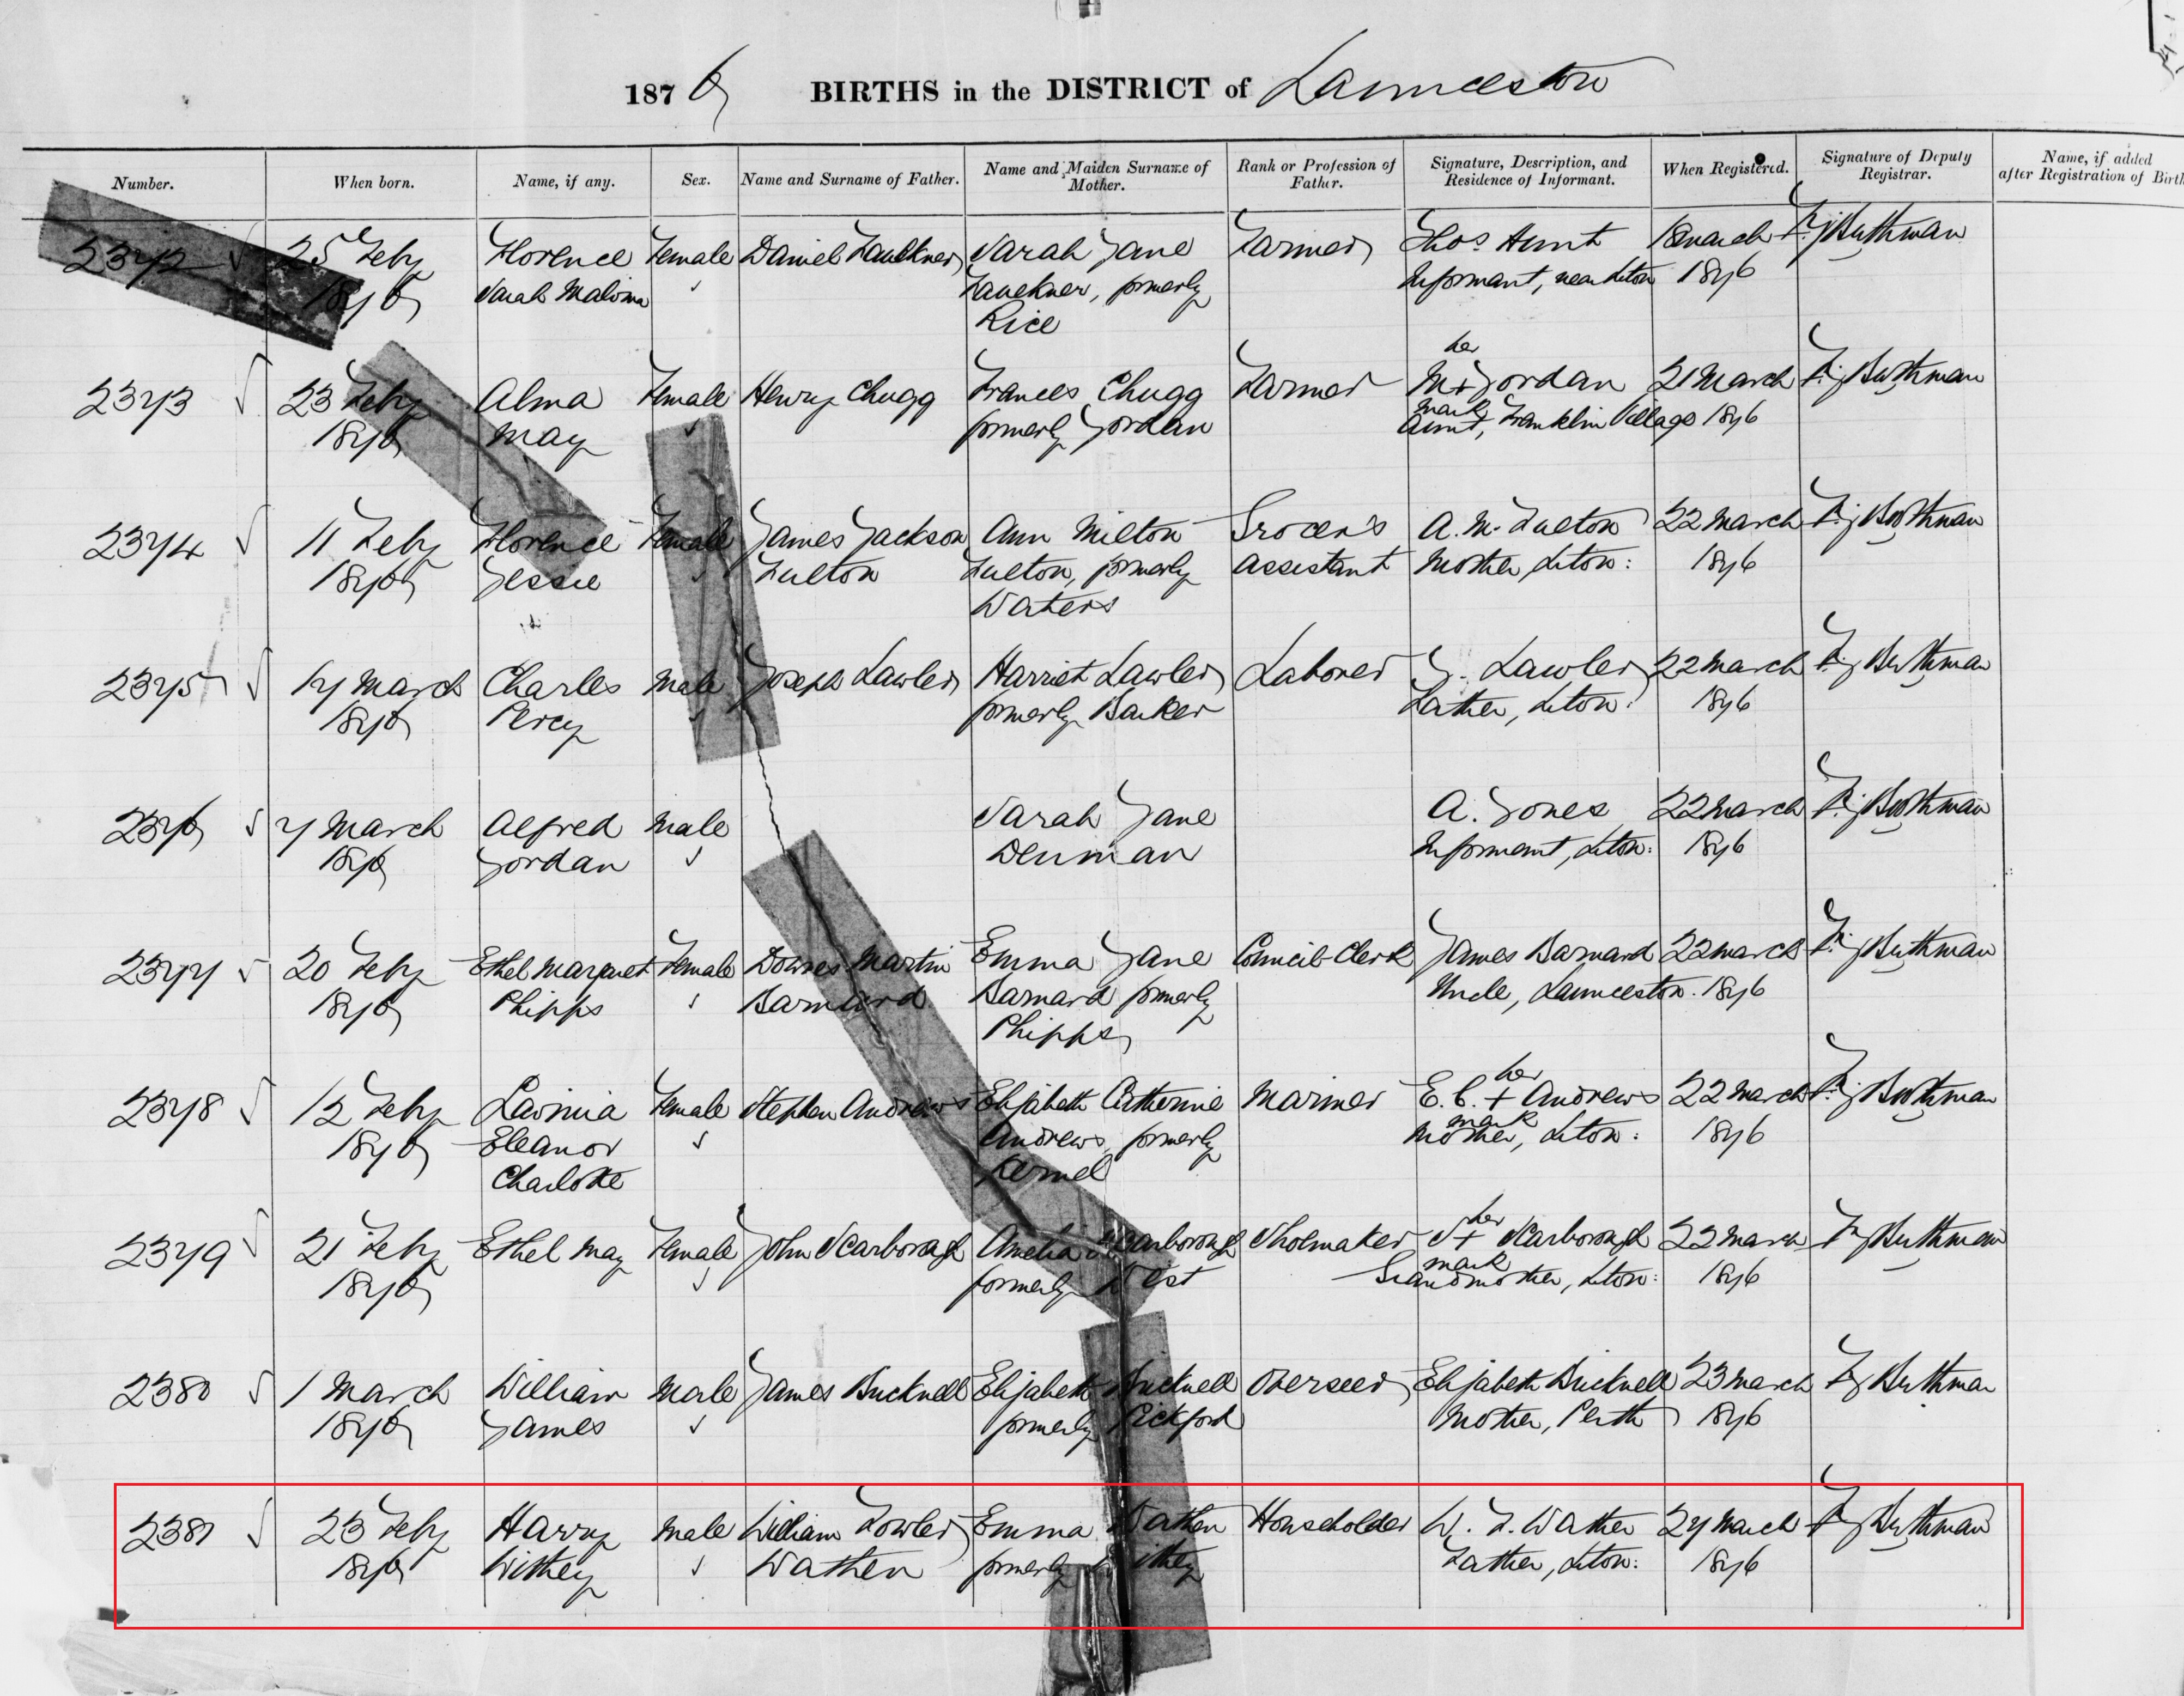 1876 BIRTHS in the DISTRICT of Launceston
Number. When born. Name, if any. Sex. Name and Surname of Father. Name and Maiden Surname of Mother. Rank or Profession of Father. Signature, Description, and Residence of Informant. When Registered. Signature of Deputy Registrar. Name, if added after Registration of Birth
2372 25 Feby Florence Female Daniel Faulkner Sarah Jane Farmer Thos Hunt 18 March
1876 Sarah Malvina Faulkner, formerly Informant, near Lton 1876
Rice
her
2373 23 Feby Alma Female Henry Chugg Frances Chugg Farmer M + Jordan 21 March
1876 May formerly Jordan mark Aunt, Franklin Village 1876
2374 11 Feby Florence Female James Jackson Ann Milton Grocer's A. M. Fulton 22 March
1876 Jessie Fulton Fulton, formerly assistant Mother, Lton: 1876
Waters
2375 17 March Charles Male Joseph Lawler Harriet Lawler Laborer J. Lawler 22 March
1876 Percy formerly Barker Father, Lton: 1876
2376 7 March Alfred Male Sarah Jane A. Jones 22 March
1876 Jordan Denman Informant, Lton: 1876
2377 20 Feby Ethel Margaret Female Downes Martin Emma Jane Council Clerk James Barnard 22 March
1876 Phipps Barnard Barnard formerly Uncle, Launceston. 1876
Phipps
her
2378 12 Feby Lavinia Female Stephen Andrews Elizabeth Catherine Mariner E. C. + Andrews 22 March
1876 Eleanor Andrews, formerly mark Mother, Lton: 1876
Charlotte Kernel
her
2379 21 Feby Ethel May Female John Scarborough Amelia Scarborough Shoemaker S + Scarborough 22 March
1876 formerly West mark Grandmother, Lton: 1876
2380 1 March William Male James Bucknell Elizabeth Bucknell Overseer Elizabeth Bucknell 23 March
1876 James formerly Pickford Mother, Perth 1876
2381 23 Feby Harry Male William Fowler Emma Wathen Householder W. F. Wathen 27 March
1876 Withey Wathen formerly Withey Father, Lton: 1876